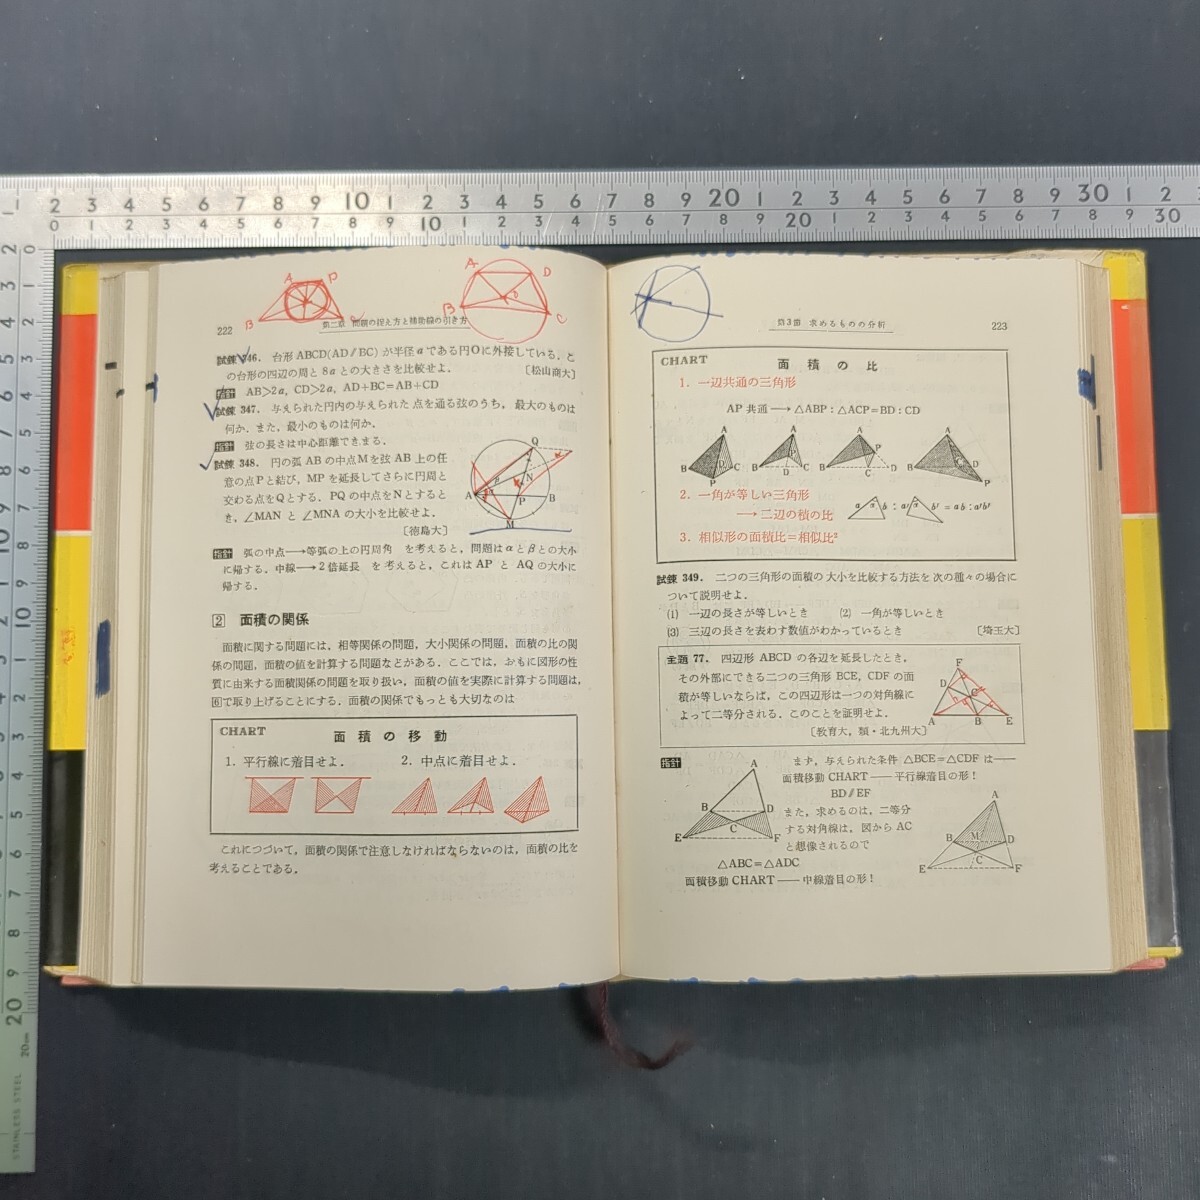 222
第二章 問題の捉え方と補助線の引き方
試錬 346. 台形 ABCD(AD∥BC) が半径 a である円Oに外接している. こ
の台形の四辺の周と 8a との大きさを比較せよ. 〔松山商大〕
指針 AB>2a, CD>2a, AD+BC=AB+CD
試錬 347. 与えられた円内の与えられた点を通る弦のうち, 最大のものは
何か. また, 最小のものは何か.
指針 弦の長さは中心距離できまる.
試錬 348. 円の弧 AB の中点Mを弦 AB 上の任
意の点Pと結び, MP を延長してさらに円周と
交わる点をQとする. PQ の中点をNとすると
き, ∠MAN と ∠MNA の大小を比較せよ.
〔徳島大〕
指針 弧の中点→等弧の上の円周角 を考えると, 問題は α と β との大小
に帰する. 中線→2倍延長 を考えると, これは AP と AQ の大小に
帰する.
2 面積の関係
面積に関する問題には, 相等関係の問題, 大小関係の問題, 面積の比の関
係の問題, 面積の値を計算する問題などがある. ここでは, おもに図形の性
質に由来する面積関係の問題を取り扱い, 面積の値を実際に計算する問題は,
6で取り上げることにする. 面積の関係でもっとも大切なのは
CHART 面積の移動
1. 平行線に着目せよ. 2. 中点に着目せよ.
これにつづいて, 面積の関係で注意しなければならないのは, 面積の比を
考えることである.
第3節 求めるものの分析
223
CHART 面積の比
1. 一辺共通の三角形
AP 共通→△ABP:△ACP=BD:CD
2. 一角が等しい三角形
→二辺の積の比
3. 相似形の面積比=相似比²
試錬 349. 二つの三角形の面積の大小を比較する方法を次の種々の場合に
ついて説明せよ.
(1) 一辺の長さが等しいとき (2) 一角が等しいとき
(3) 三辺の長さを表わす数値がわかっているとき 〔埼玉大〕
主題 77. 四辺形 ABCD の各辺を延長したとき,
その外部にできる二つの三角形 BCE, CDF の面
積が等しいならば, この四辺形は一つの対角線に
よって二等分される. このことを証明せよ.
〔教育大, 類・北九州大〕
指針 まず, 与えられた条件 △BCE=△CDF は——
面積移動 CHART——平行線着目の形!
BD∥EF
また, 求めるのは, 二等分
する対角線は, 図から AC
と想像されるので
△ABC=△ADC
面積移動 CHART——中線着目の形!
STAINLESS STEEL